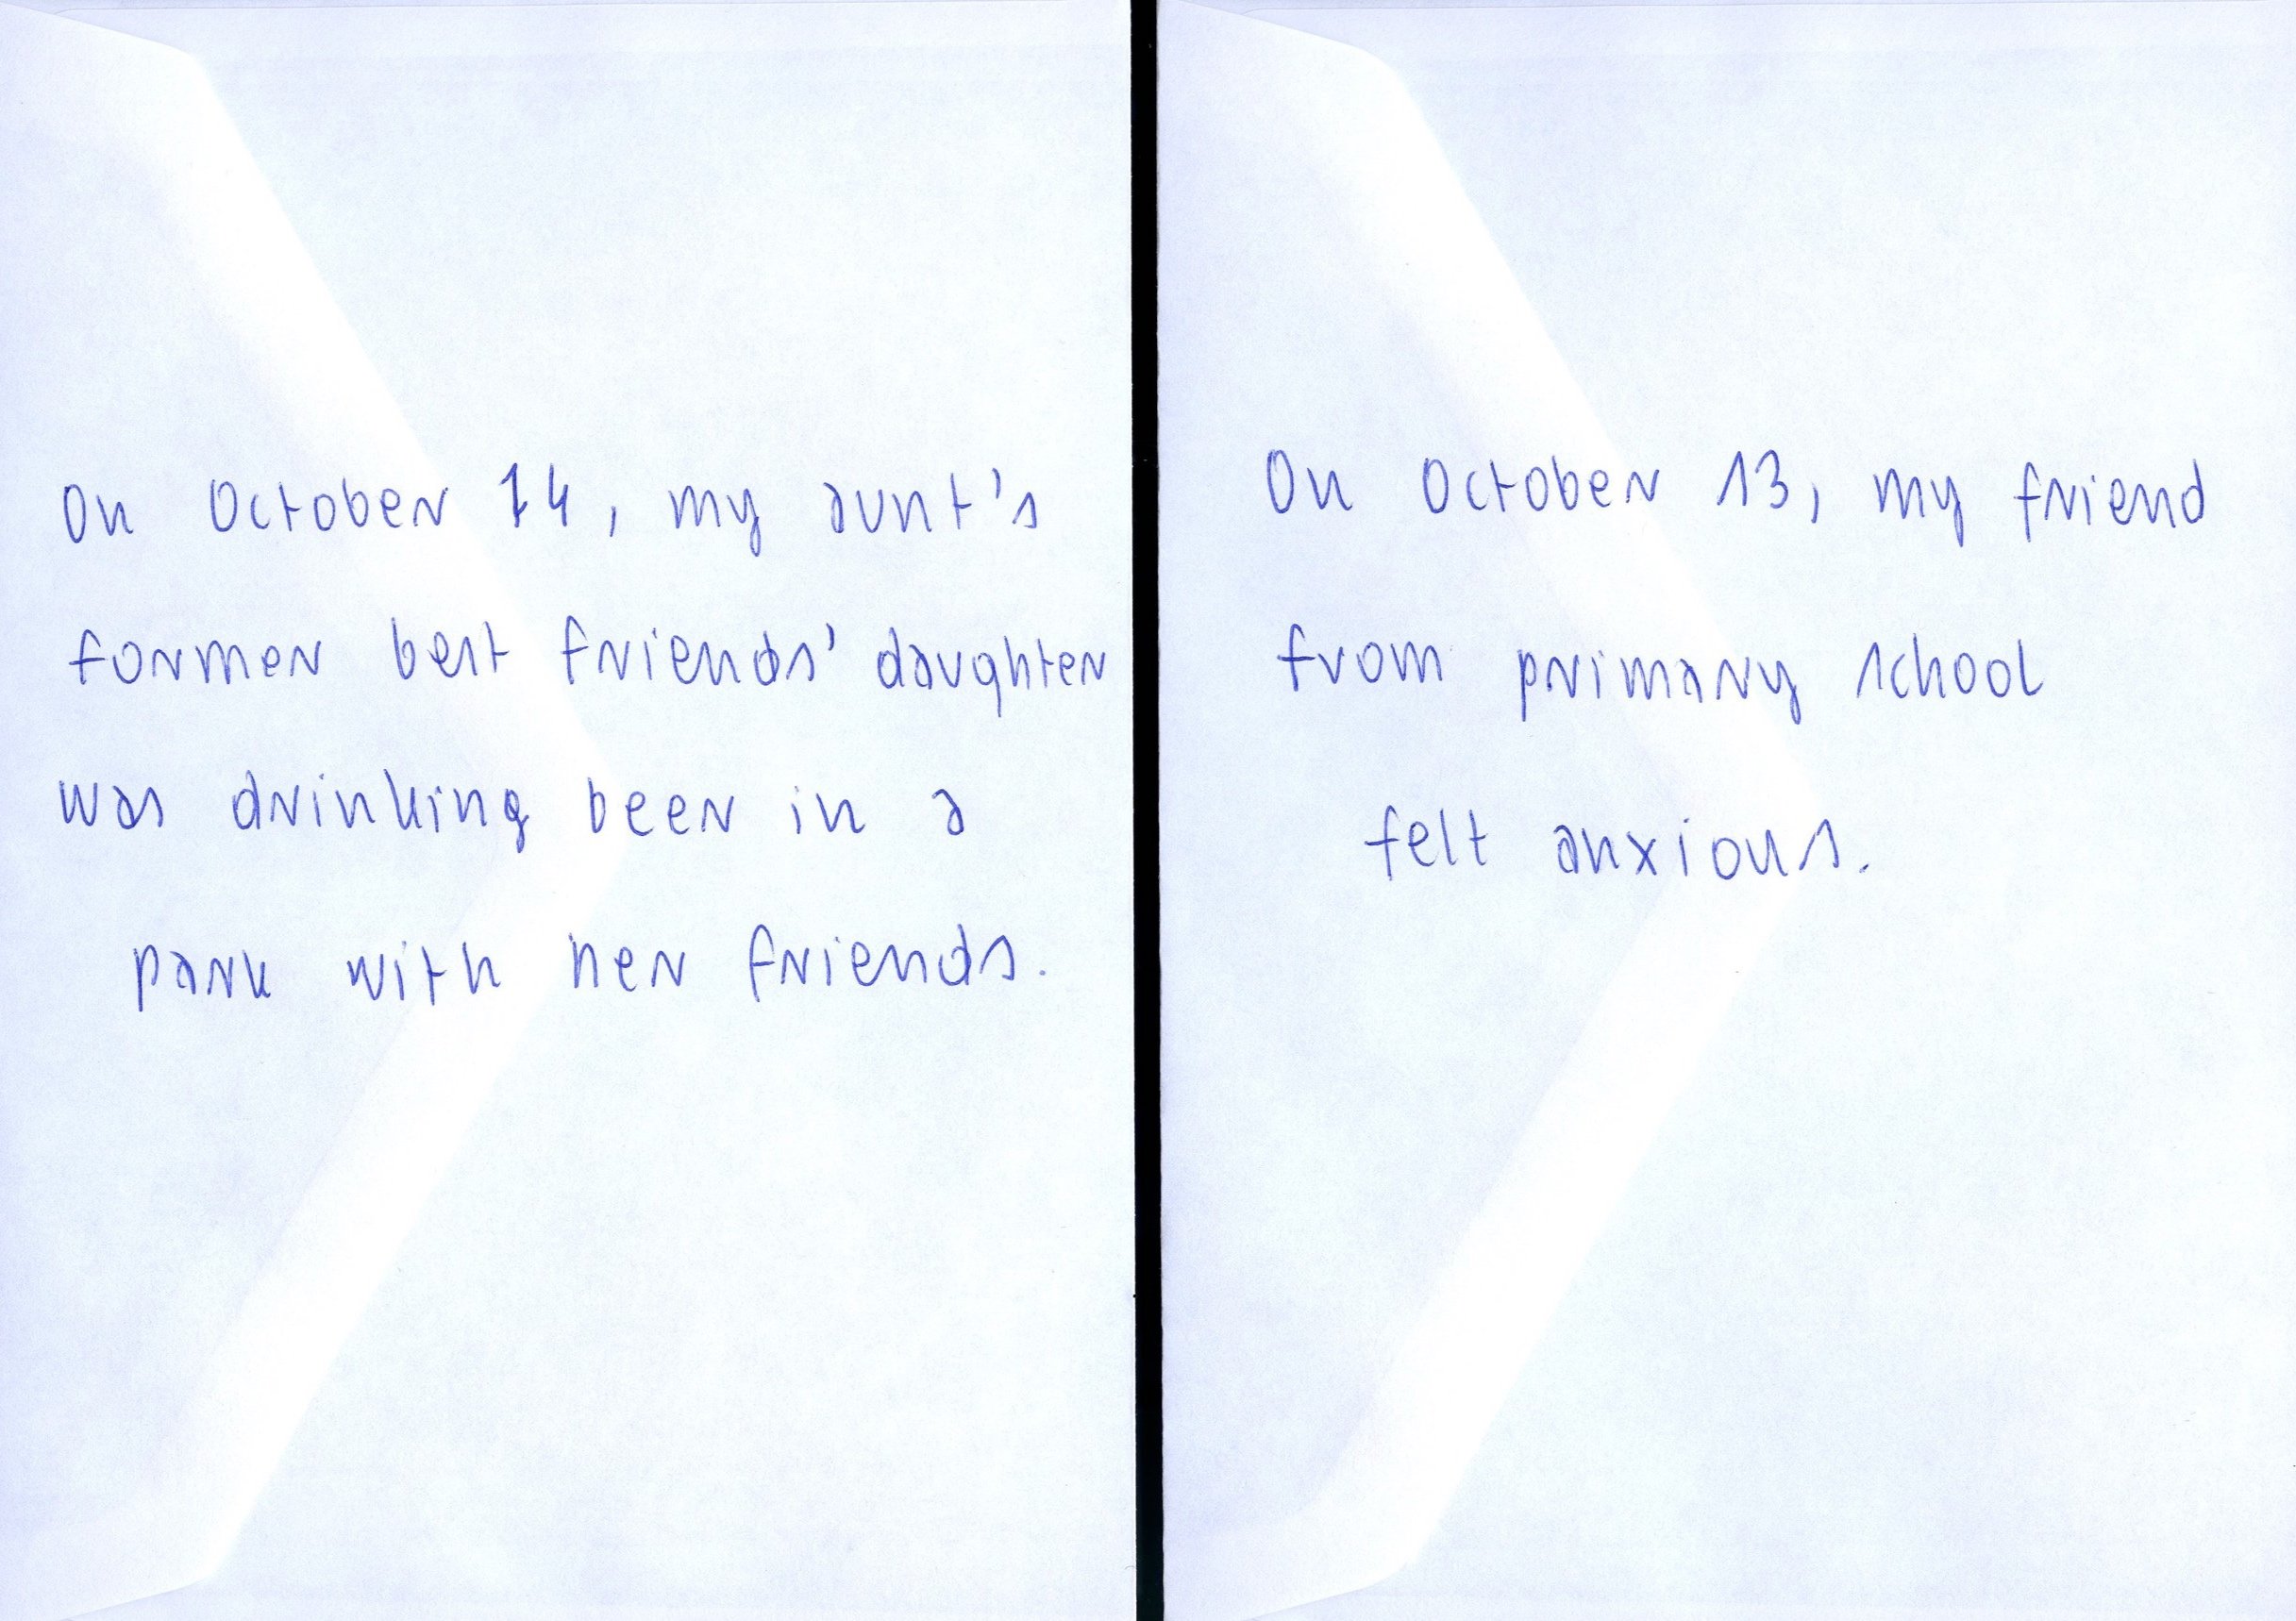 On October 14, my aunt's
former best friends' daughter
was drinking beer in a
park with her friends.
On October 13, my friend
from primary school
felt anxious.